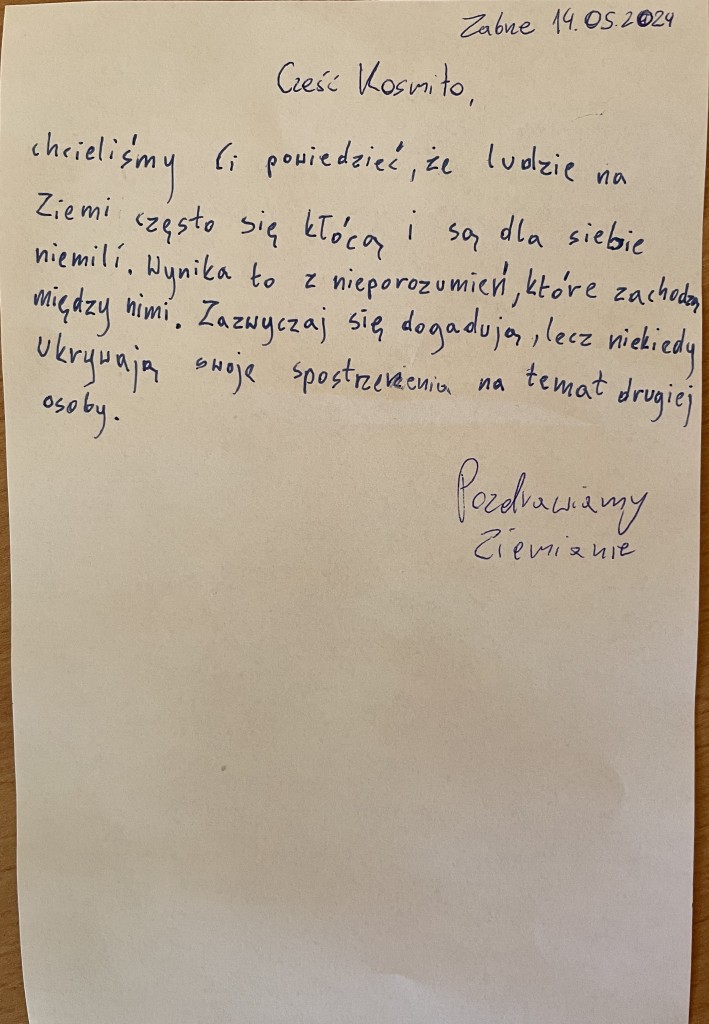 Zabne 14.05.2024
Cześć Kosmito,
chcieliśmy Ci powiedzieć, że ludzie na
Ziemi często się kłócą i są dla siebie
niemili. Wynika to z nieporozumień, które zachodzą
między nimi. Zazwyczaj się dogadują, lecz niekiedy
ukrywają swoje spostrzeżenia na temat drugiej
osoby.
Pozdrawiamy
Ziemianie